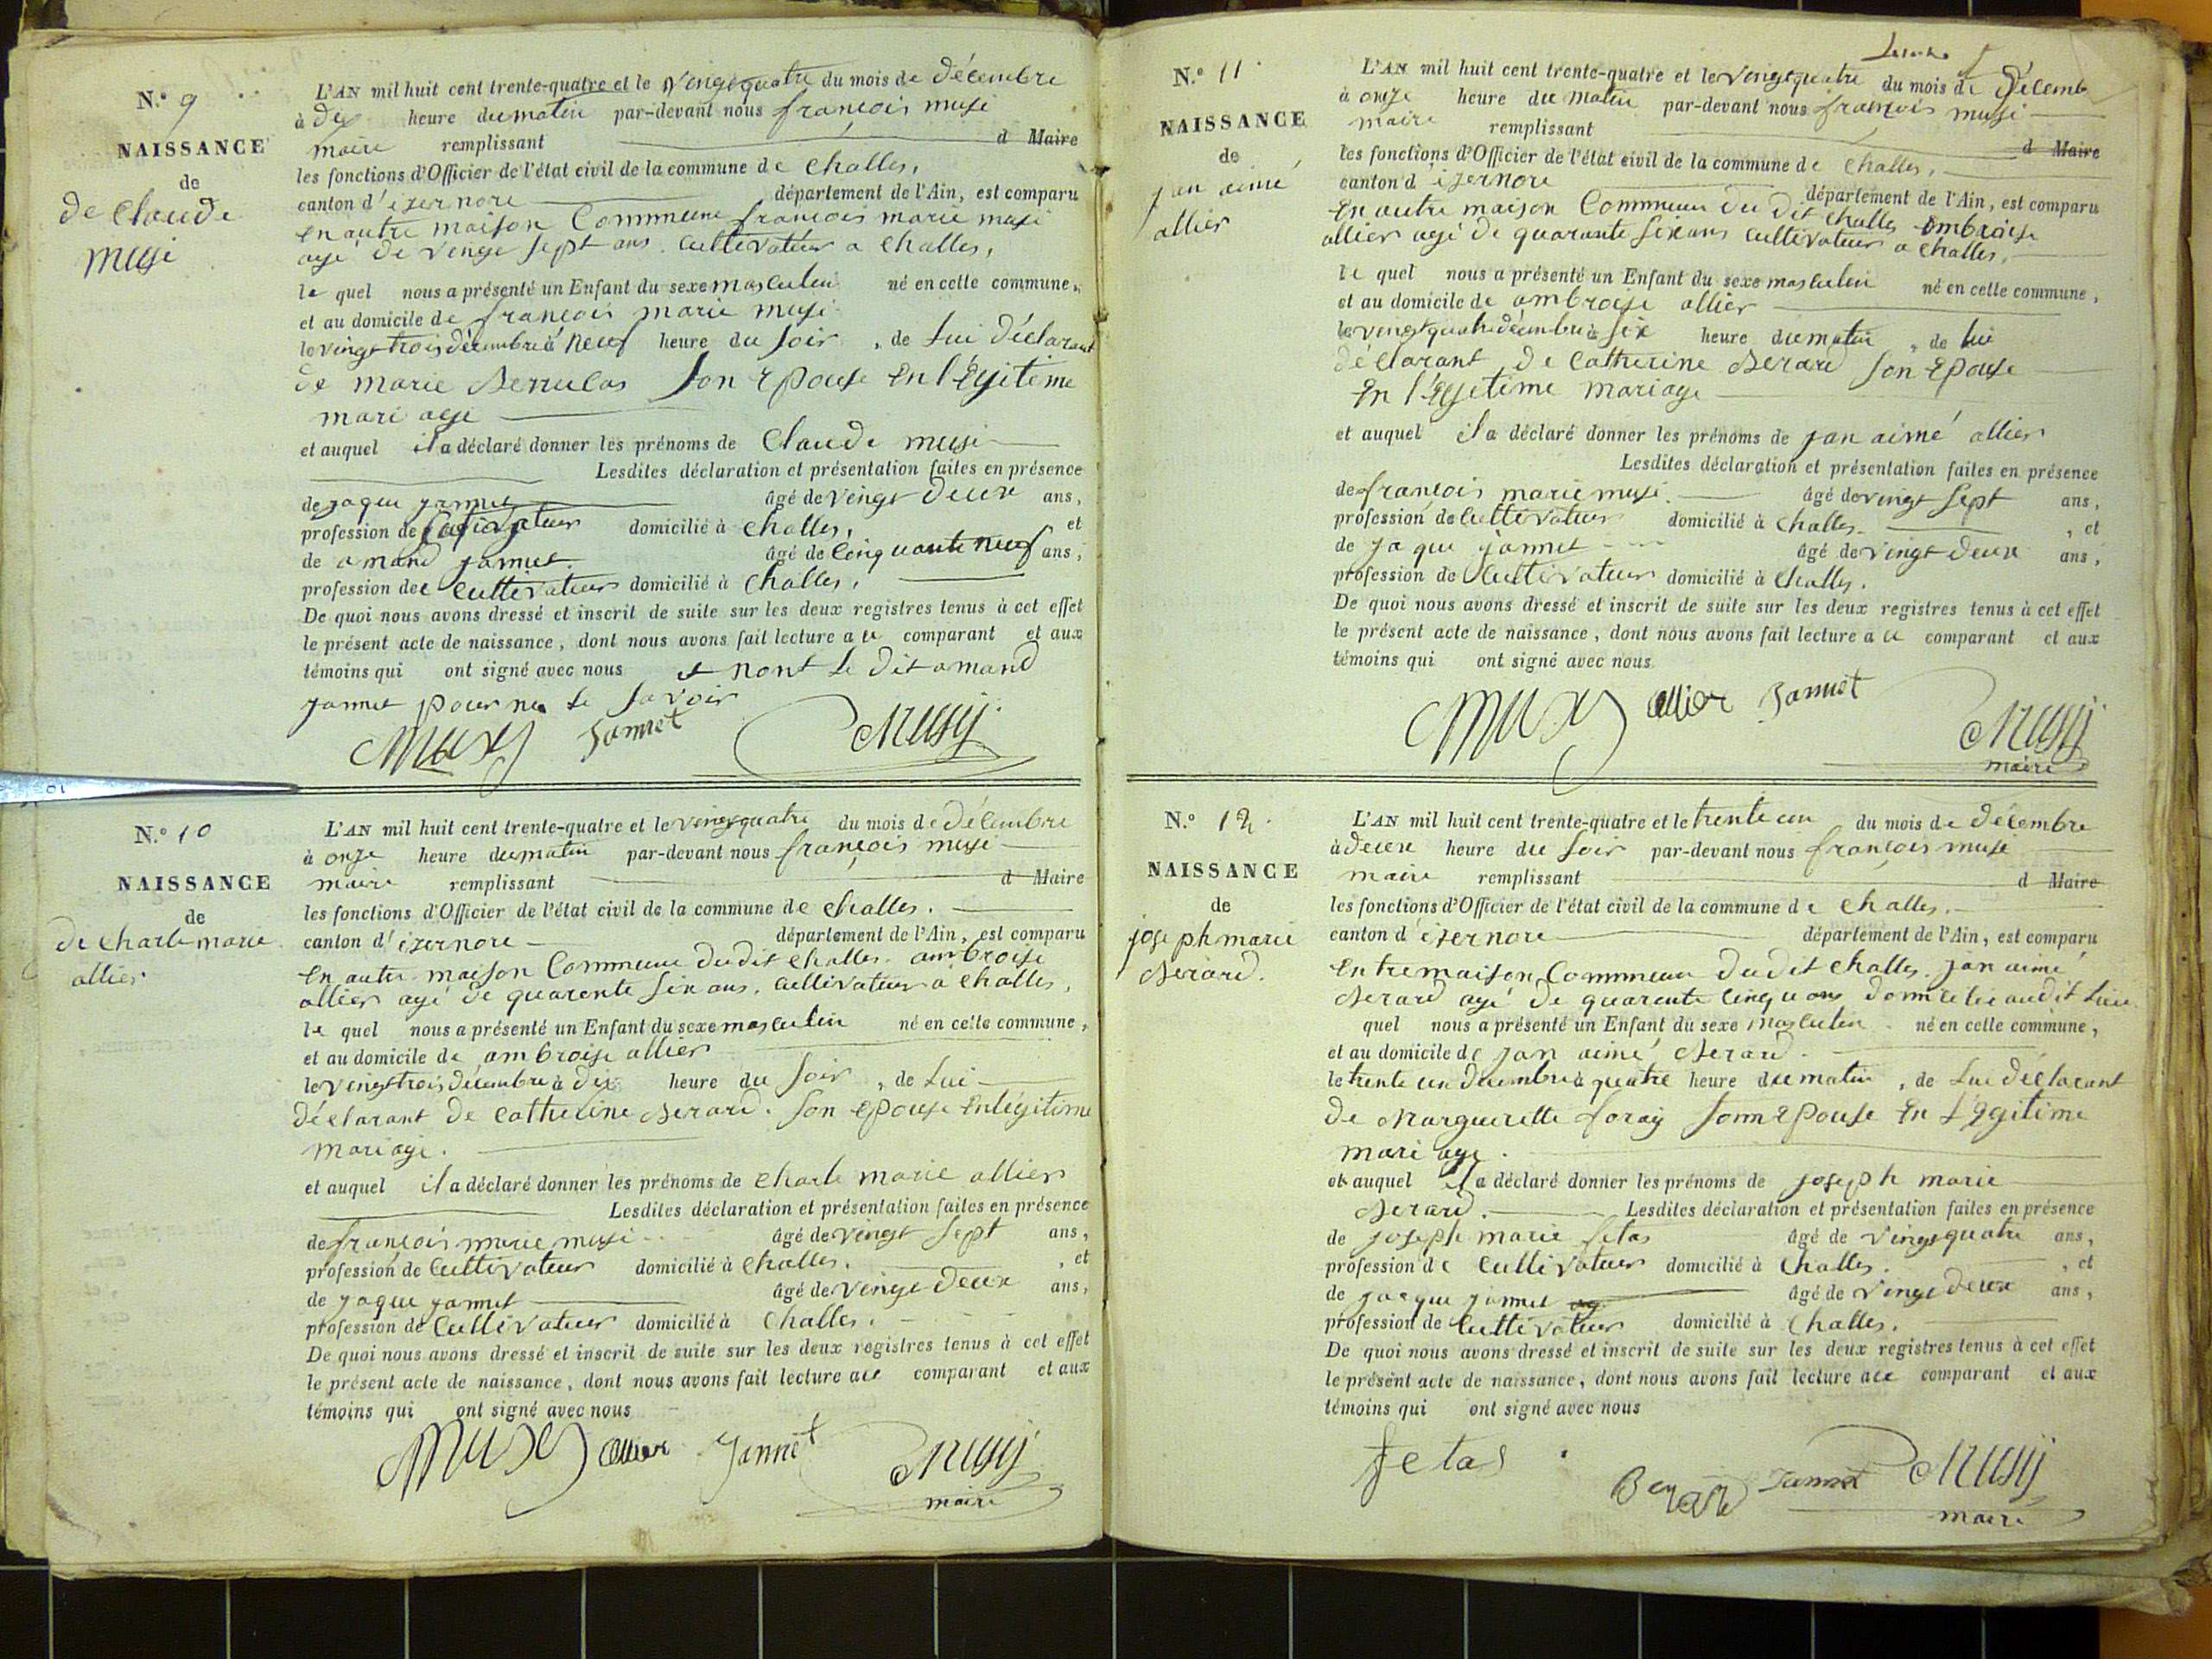 N.° 9
NAISSANCE
de
de Claude
musi
L'AN mil huit cent trente-quatre et le vingt quatre du mois de décembre
à dix heure du matin par-devant nous françois musi
maire remplissant d Maire
les fonctions d'Officier de l'état civil de la commune de Challes,
canton d'izernore département de l'Ain, est comparu
En autre maison Commune françois marie musi
agé de vingt sept ans. cultivateur a Challes,
le quel nous a présenté un Enfant du sexe masculin né en cette commune,
et au domicile de françois marie musi
le vingt trois décembre à neuf heure du soir, de Lui déclarant
de marie son Epouse En légitime
mariage
et auquel il a déclaré donner les prénoms de Claude musi
Lesdites déclaration et présentation faites en présence
de jaque jannet âgé de vingt deux ans,
profession de Cultivateur domicilié à Challes, et
de amand jannet. âgé de cinquante neuf ans,
profession de Cultivateur domicilié à Challes,
De quoi nous avons dressé et inscrit de suite sur les deux registres tenus à cet effet
le présent acte de naissance, dont nous avons fait lecture au comparant et aux
témoins qui ont signé avec nous et nont le dit amand
jannet pour ne le savoir
Musy Jannet Musy
N.° 10
NAISSANCE
de
de Charle marie
allier
L'AN mil huit cent trente-quatre et le vingt quatre du mois de décembre
à onze heure du matin par-devant nous françois musi
maire remplissant d Maire
les fonctions d'Officier de l'état civil de la commune de Challes.
canton d'izernore département de l'Ain, est comparu
En autre maison Commune dudit Challes. ambroise
allier agé de quarente six ans. cultivateur a Challes,
le quel nous a présenté un Enfant du sexe masculin né en cette commune,
et au domicile de ambroise allier
le vingt trois décembre à dix heure du soir, de Lui
déclarant de Catherine Berard. son Epouse En légitime
mariage.
et auquel il a déclaré donner les prénoms de Charle marie allier
Lesdites déclaration et présentation faites en présence
de françois marie musi âgé de vingt sept ans,
profession de Cultivateur domicilié à Challes. , et
de jaque jannet âgé de vingt deux ans,
profession de Cultivateur domicilié à Challes.
De quoi nous avons dressé et inscrit de suite sur les deux registres tenus à cet effet
le présent acte de naissance, dont nous avons fait lecture au comparant et aux
témoins qui ont signé avec nous
Musy allier Jannet Musy
maire
N.° 11
NAISSANCE
de
jan aimé
allier
L'AN mil huit cent trente-quatre et le vingt quatre du mois de Décemb
à onze heure du matin par-devant nous françois musi
maire remplissant d Maire
les fonctions d'Officier de l'état civil de la commune de Challes,
canton d'izernore département de l'Ain, est comparu
En autre maison Commune du dit Challes ambroise
allier agé de quarante six ans cultivateur a Challes,
le quel nous a présenté un Enfant du sexe masculin né en cette commune,
et au domicile de ambroise allier
le vingt quatre décembre à six heure du matin, de lui
déclarant de Catherine Berard son Epouse
En légitime mariage
et auquel il a déclaré donner les prénoms de jan aimé allier
Lesdites déclaration et présentation faites en présence
de françois marie musi. âgé de vingt sept ans,
profession de Cultivateur domicilié à Challes. , et
de jaque jannet âgé de vingt deux ans,
profession de Cultivateur domicilié à Challes.
De quoi nous avons dressé et inscrit de suite sur les deux registres tenus à cet effet
le présent acte de naissance, dont nous avons fait lecture au comparant et aux
témoins qui ont signé avec nous
Musy allier Jannet Musy
maire
N.° 12
NAISSANCE
de
joseph marie
Berard.
L'AN mil huit cent trente-quatre et le trente un du mois de décembre
à deux heure du soir par-devant nous françois musi
maire remplissant d Maire
les fonctions d'Officier de l'état civil de la commune de Challes.
canton d'izernore département de l'Ain, est comparu
Entre maison Commune dudit Challes. jan aimé
Berard agé de quarente cinq ans domicilié audit Lieu
quel nous a présenté un Enfant du sexe masculin né en cette commune,
et au domicile de jan aimé Berard.
le trente un décembre à quatre heure du matin, de Lui déclarant
de Marguerette foray sonn Epouse En Légitime
mariage.
et auquel il a déclaré donner les prénoms de joseph marie
Berard. Lesdites déclaration et présentation faites en présence
de joseph marie fetas âgé de vingt quatre ans,
profession de Cultivateur domicilié à Challes. , et
de jacque jannet âgé de vingt deux ans,
profession de Cultivateur domicilié à Challes.
De quoi nous avons dressé et inscrit de suite sur les deux registres tenus à cet effet
le présent acte de naissance, dont nous avons fait lecture au comparant et aux
témoins qui ont signé avec nous
fetas Berard Jannet Musy
maire